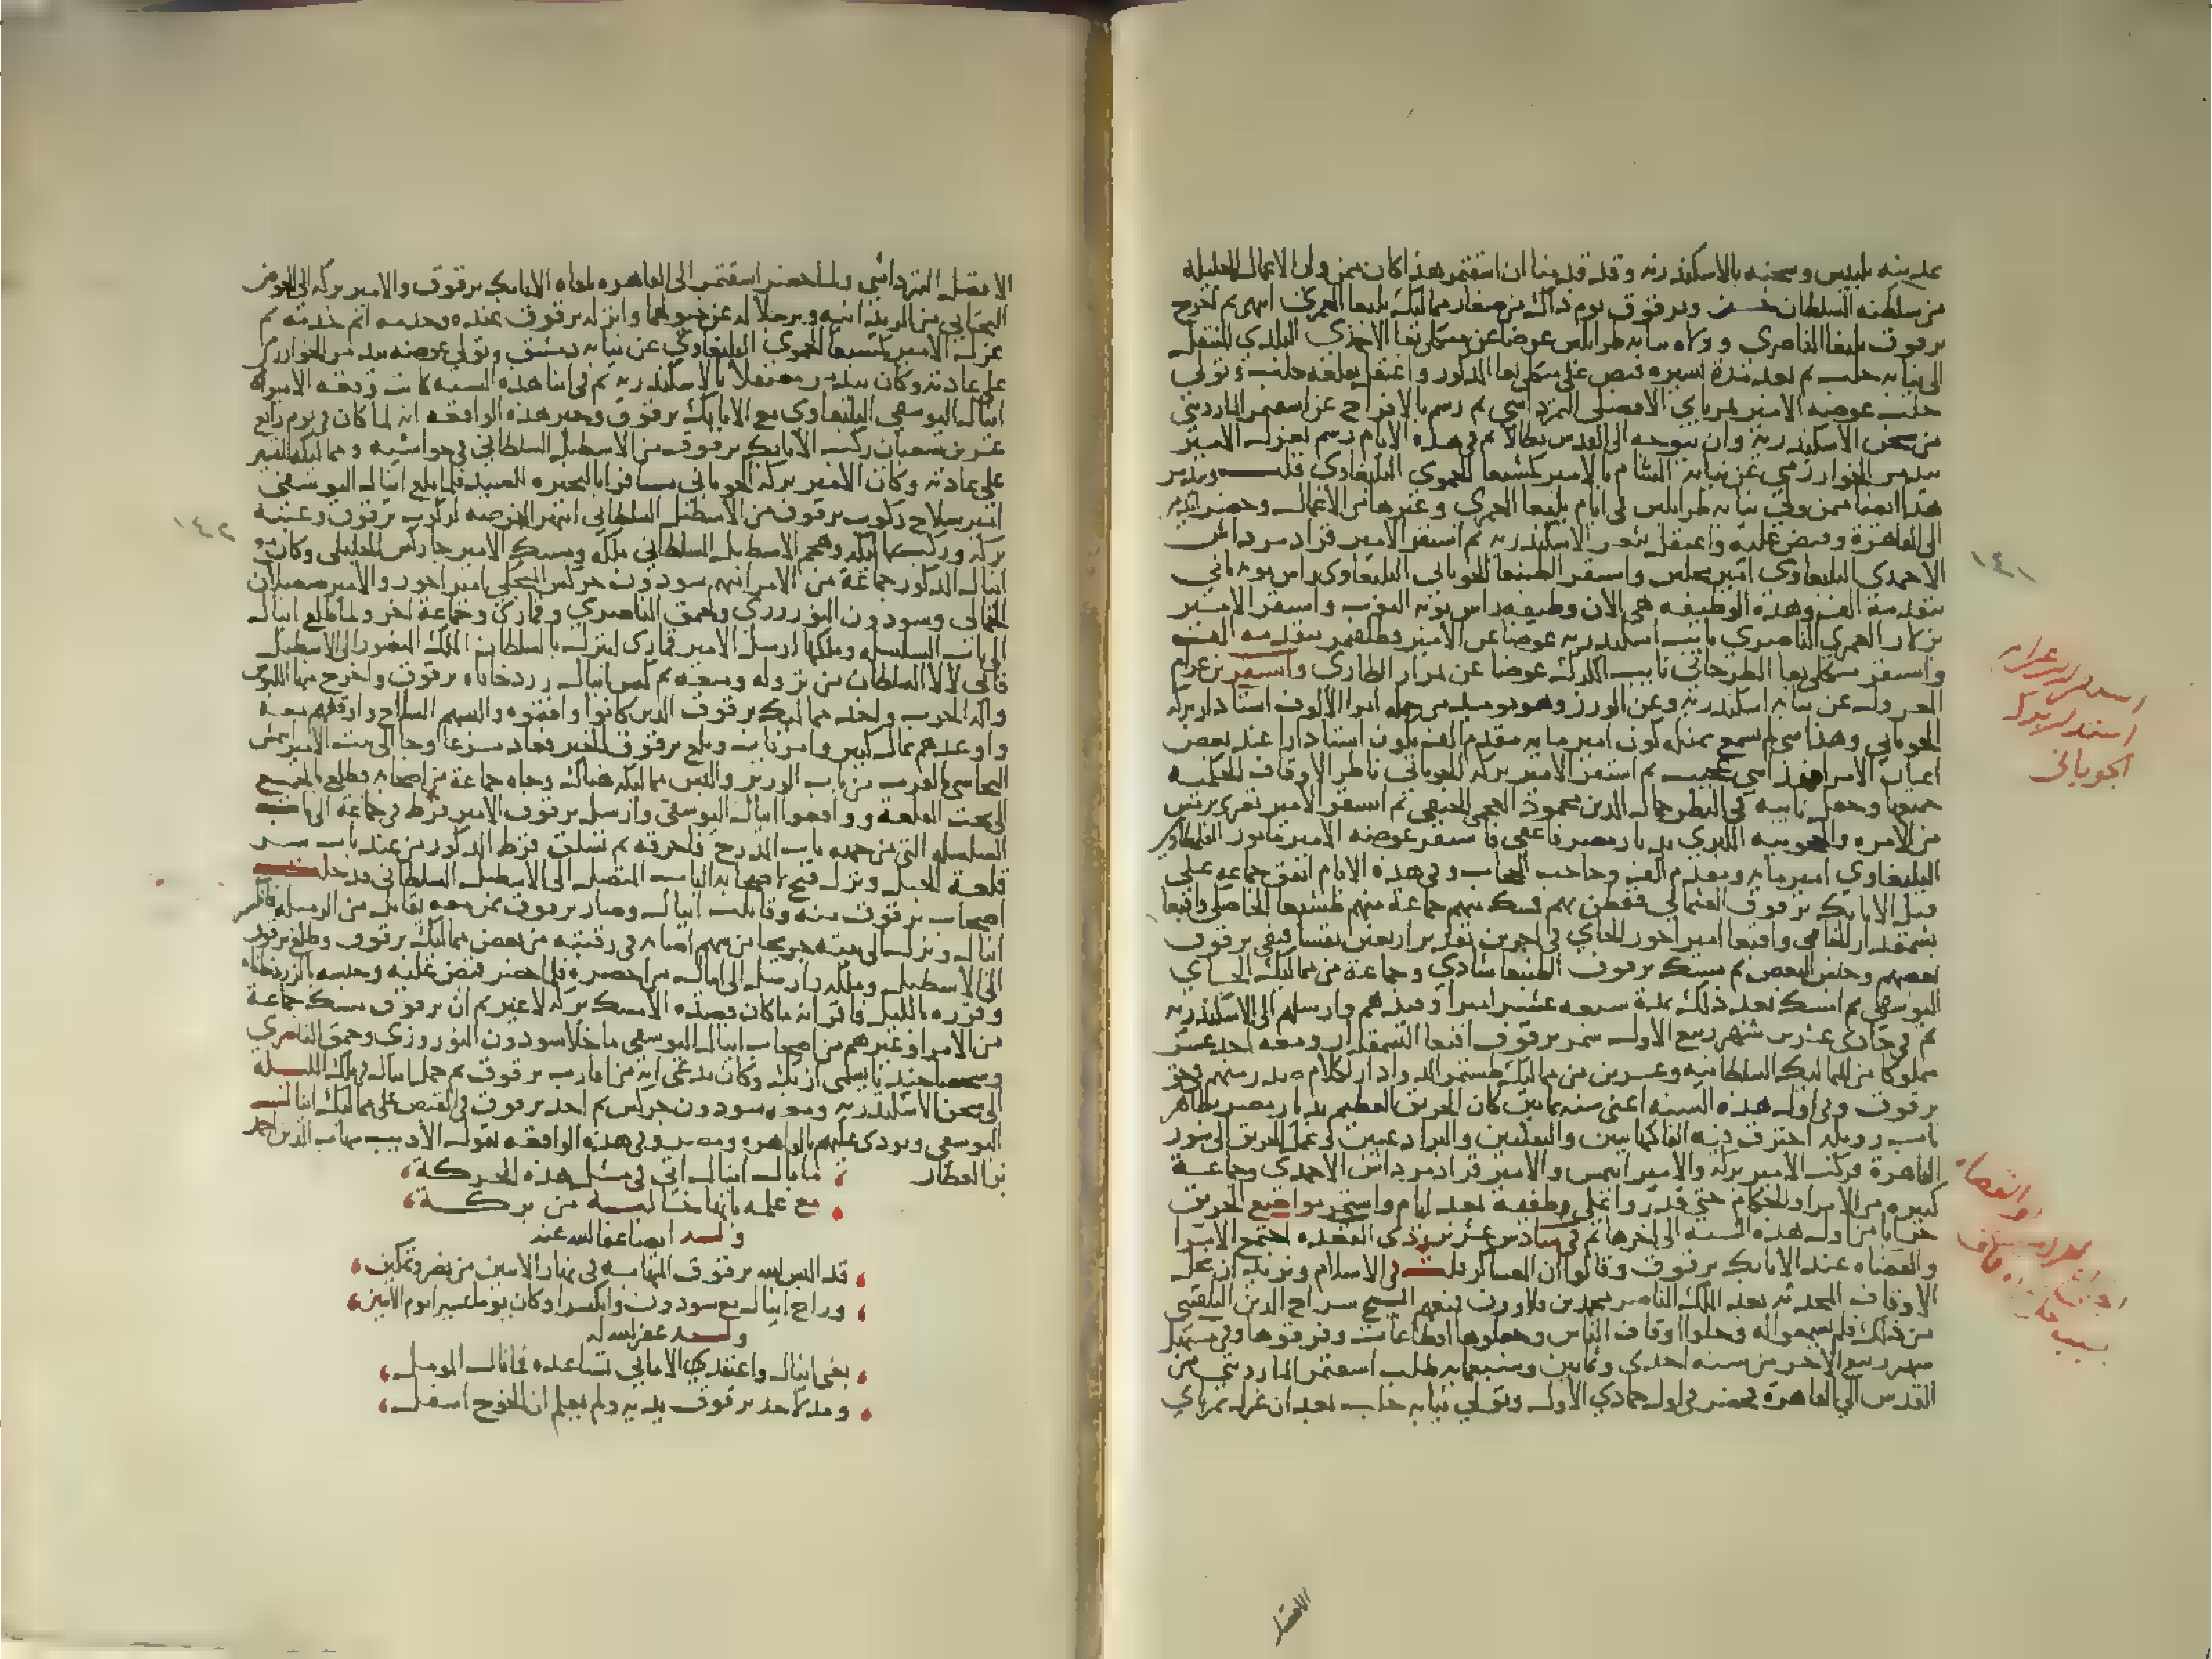 بمدينه بلبيس وسجنه بالاسكندريه وقد قدمنا ان اشقتمر هذا كان ممن ولى الاعمال الجليله
من سلطنه السلطان حسن وبرقوق يوم ذاك من صغار مماليك يلبغا العمرى انتهى ثم اخرج
برقوق يلبغا الناصرى وولاه نيابه طرابلس عوضا عن منكلى بغا الاحمدى البلدى المنتقل
الى نيابه حلب ثم بعد مدة يسيره قبض على منكلى بغا المذكور واعتقل بقلعه حلب وتولى
حلب عوضه الامير تمرباى الافضلى التمرداشى ثم رسم بالافراج عن اشقتمر الماردينى
من سجن الاسكندريه وان يتوجه الى القدس بطالا ثم فى هذه الايام رسم بعزل الامير
بيدمر الخوارزمى عن نيابه الشام بالامير كمشبغا الحموى اليلبغاوى قلت وبيدمر
هذا ايضا ممن ولى نيابه طرابلس فى ايام يلبغا العمرى وغيرها من الاعمال وحضر بيدمر
الى القاهرة وقبض عليه واعتقل بثغر الاسكندريه ثم استقر الامير قرادمرداش
الاحمدى اليلبغاوى امير مجلس واستقر الطنبغا الجوبانى اليلبغاوى راس نوبه ثانى
بتقدمه الف وهذه الوظيفه هى الان وظيفه راس نوبه النوب واستقر الامير
بزلار العمرى الناصرى نايب اسكندريه عوضا عن الامير وطلقتمر بتقدمه الف
واستقر منكلى بغا الطرخانى نايب الكرك عوضا عن تمراز الطازى واستقر بن عرام
المعزول عن نيابه اسكندريه وعن الوزر وهو يوميذ من جمله امرا الالوف استادار بركه
الجوبانى وهذا شى لم يسمع بمثله كون امير مايه مقدم الف يكون استادارا عند بعض
اعيان الامرا فهذا شى عجيب ثم استقر الامير بركه الجوبانى ناظر الاوقاف الحكميه
جميعها وجعل نايبه فى النظر جمال الدين محمود العجمى الحنفى ثم استقر الامير تغرى برمش
من الامره والحجوبيه الكبرى بديار مصر فاعفى فاستقر عوضه الامير مامور القلمطاوى
اليلبغاوى امير مايه ومقدم الف وحاجب الحجاب وفى هذه الايام اتفق جماعه على
قتل الاتابك برقوق العثمانى ففطن بهم فمسك منهم جماعة منهم طشبغا الخاصكى واقبغا
بشمقدار الجاى واقبغا امير اخور الجاى فى اخرين تقدير اربعين نفسا فنفى برقوق
بعضهم وحبس البعض ثم مسك برقوق الطنبغا شادى وجماعة من مماليك الجاى
اليوسفى ثم امسك بعد ذلك بمدة سبعه عشر اميرا وقيدهم وارسلهم الى الاسكندريه
ثم فى حادى عشرين شهر ربيع الاول سمر برقوق اقبغا البشمقدار ومعه احد عشر
مملوكا من المماليك السلطانيه وعشرين من مماليك طشتمر الدوادار لكلام صدر منهم فى حق
برقوق وفى اول هذه السنه اعنى سنه ثمانين كان الحريق العظيم بديار مصر بظاهر
باب زويله احترق فيه الفاكهانيين والنقليين والبرادعيين الى عمل الحريق الى سور
القاهرة فركب الامير بركه والامير ايتمش والامير قرادمرداش الاحمدى وجماعة
كبيره من الامرا والحكام حتى قدروا على طفيه بعد ايام واستمر مواضع الحريق
خرابا من اول هذه السنه الى اخرها ثم فى سادس عشرين ذى القعده اجتمع الامرا
والقضاه عند الاتابك برقوق وقالوا ان العساكر قلت فى الاسلام ونريد ان نحل
الاوقاف المحدثه بعد الملك الناصر محمد بن قلاوون فمنعهم الشيخ سراج الدين البلقينى
من ذلك فلم يسمعوا له وحلوا اوقاف الناس وجعلوها اقطاعات وفرقوها وفى مستهل
شهر ربيع الاخر من سنه احدى وثمانين وسبعمايه طلب اشقتمر الماردينى من
القدس الى القاهرة فحضر فى اول جمادى الاولى وتولى نيابه حلب بعد ان عزل تمرباى
١٤١
الجوبانى
والقضاه
الافضلى
الافضلى التمرداشى ولما حضر اشقتمر الى القاهره تلقاه الاتابك برقوق والامير بركه الى
التحتانى من الريدانيه وترجلا له عن خيولهما وانزله برقوق عنده وخدمه اتم خدمه ثم
عزل الامير كمشبغا الحموى اليلبغاوى عن نيابه دمشق وتولى عوضه بيدمر الخوارزمى
على عادته وكان بيدمر معتقلا بالاسكندريه ثم فى اثنا هذه السنه كانت وقعه الامير
اينال اليوسفى اليلبغاوى مع الاتابك برقوق وخبر هذه الواقعه انه لما كان فى يوم رابع
عشرين شعبان ركب الاتابك برقوق من الاسطبل السلطانى فى حواشيه ومماليكه للتسيير
على عادته وكان الامير بركه الجوبانى مسافرا بالبحيره للصيد فلما بلغ اينال اليوسفى
امير سلاح ركوب برقوق من الاسطبل السلطانى انتهز الفرصه لركوب برقوق وغيبه
بركه وركب بمماليكه وهجم الاسطبل السلطانى وملكه ومسك الامير جاركس الخليلى وكان مع
اينال المذكور جماعة من الامرا منهم سودون جركس المنجكى امير اخور والامير صصلان
الجمالى وسودون النوروزى وجمق الناصرى وقمارى وجماعة اخر ولما طلع اينال
الى باب السلسله وملكها ارسل الامير قمارى لينزل بالسلطان الملك المنصور الى الاسطبل
فابى لالا السلطان من نزوله ومنعه ثم كبس اينال زردخاناه برقوق واخرج منها اللبوس
والة الحرب واخذ مماليك برقوق الذين كانوا وافقوه والبسهم السلاح واوقفهم معه
واوعدهم بمال كبير وامريات وبلغ برقوق الخبر فعاد مسرعا وجا الى بيت الامير ايتمش
البجاسى بالقرب من باب الوزير والبس مماليكه هناك وجاه جماعة من اصحابه وطلع الجميع
الى تحت القلعة وواقعوا اينال اليوسفى وارسل برقوق الامير قرط فى جماعة الى باب
السلسله التى من جهه باب المدرج فاحرقه ثم تسلق قرط المذكور من عند باب سر
قلعة الجبل ونزل ففتح لاصحابه الباب المتصل الى الاسطبل السلطانى فدخلت
اصحاب برقوق منه وقاتلت اينال وصار برقوق بمن معه يقاتل من الرميله فانكسر
اينال ونزل الى بيته جريحا من سهم اصابه فى رقبته من بعض مماليك برقوق وطلع برقوق
الى الاسطبل وملكه وارسل الى اينال من احضره فلما حضر قبض عليه وحبسه بالزردخاناه
وقرره بالليل فاقر انه ما كان قصده الا مسك بركه لا غير ثم ان برقوق مسك جماعة
من الامرا وغيرهم من اصحاب اينال اليوسفى ما خلا سودون النوروزى وجمق الناصرى
وشخصا جنديا يسمى ازبك وكان يدعى انه من اقارب برقوق ثم حمل اينال فى تلك الليله
الى سجن الاسكندريه ومعه سودون جركس ثم اخذ برقوق فى القبض على مماليك اينال
اليوسفى ونودى عليهم بالقاهره ومصر وفى هذه الواقعه يقول الاديب شهاب الدين احمد
بن العطار
ما بال اينال اتى فى مثل هذه الحركة
مع علمه بانها خاليه من بركة
وله ايضا عفا الله عنه
قد البس الله برقوق المهابه فى نهار الاثنين من نصر وتمكين
وراح اينال مع سودون وانكسرا وكان يوما عسيرا يوم الاثنين
وله غفر الله له
بغى اينال واعتقد الامانى تساعده فما نال المومل
ومد لاخذ برقوق يديه ولم يعلم ان الخوخ اسفل
١٤٢